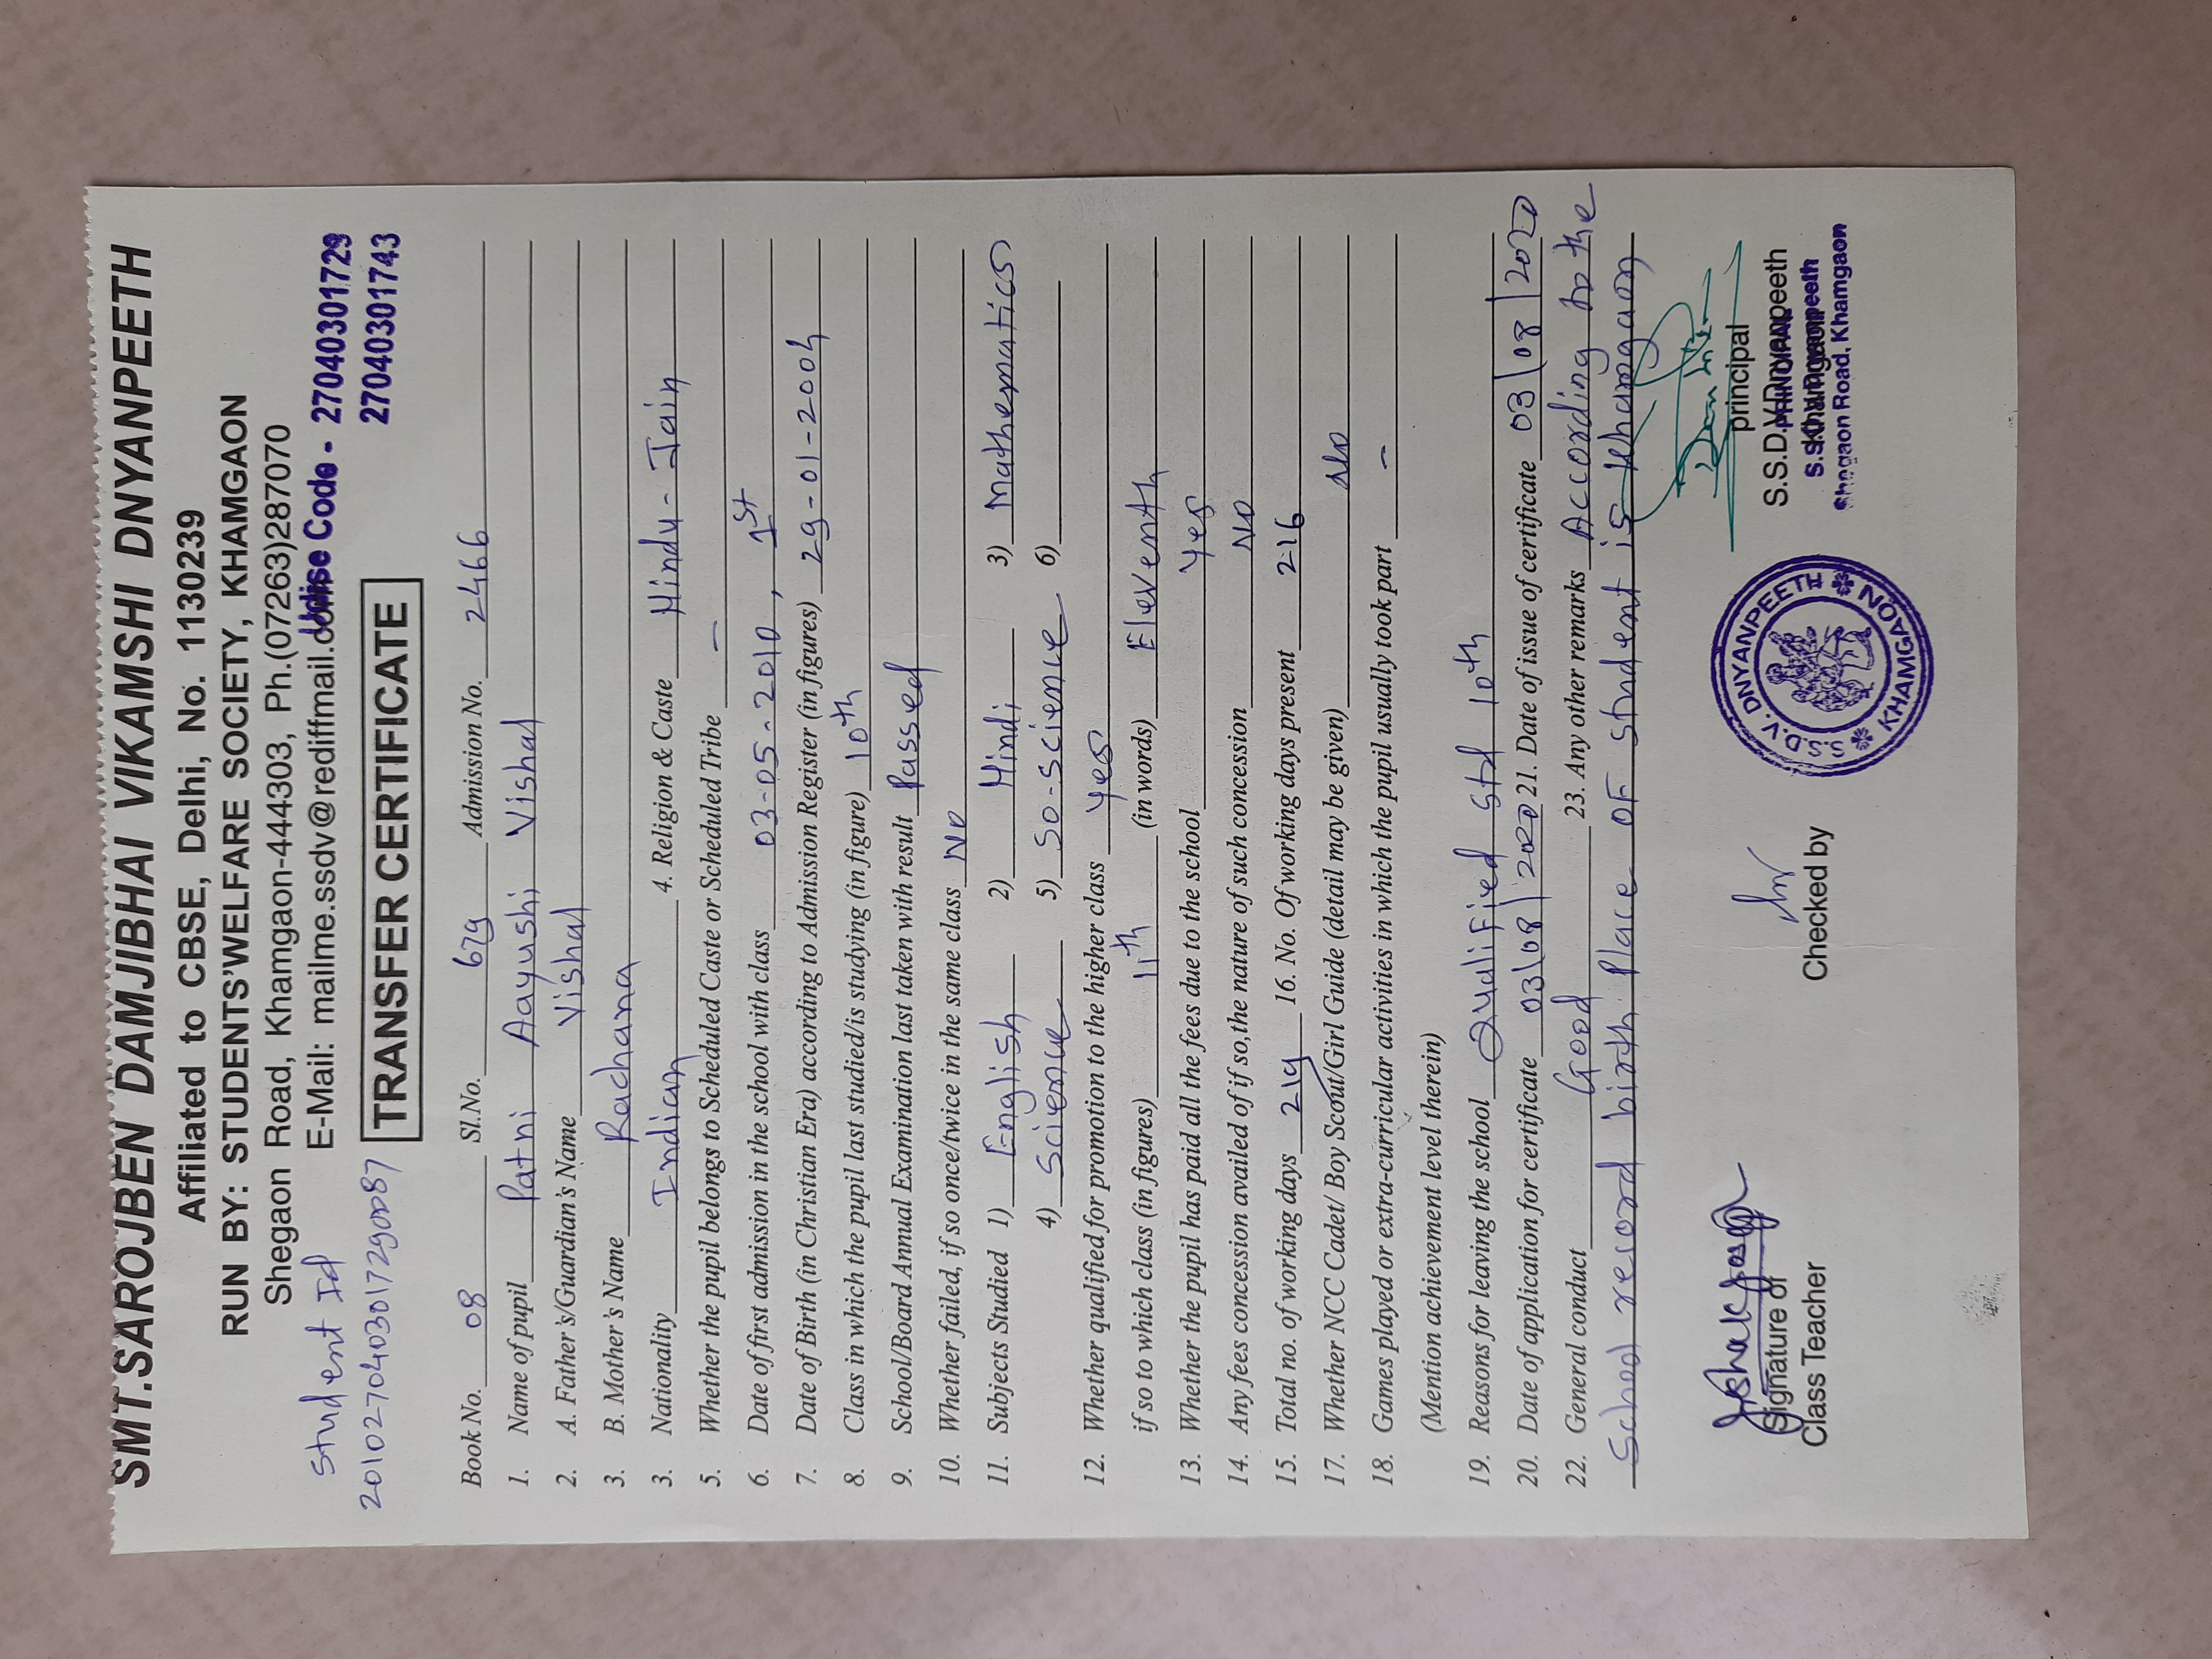 SMT.SAROJBEN DAMJIBHAI VIKAMSHI DNYANPEETH
Affiliated to CBSE, Delhi, No. 1130239
RUN BY: STUDENTS'WELFARE SOCIETY, KHAMGAON
Shegaon Road, Khamgaon-444303, Ph.(07263)287070
Student Id E-Mail: mailme.ssdv@rediffmail.com Udise Code - 27040301729
2010270403017290087 TRANSFER CERTIFICATE 27040301743
Book No. 08 Sl.No. 679 Admission No. 2466
1. Name of pupil Patni Aayushi Vishal
2. A. Father's/Guardian's Name Vishal
3. B. Mother's Name Rachana
3. Nationality Indian 4. Religion & Caste Hindu - Jain
5. Whether the pupil belongs to Scheduled Caste or Scheduled Tribe -
6. Date of first admission in the school with class 03-05-2010, 1st
7. Date of Birth (in Christian Era) according to Admission Register (in figures) 29-01-2004
8. Class in which the pupil last studied/is studying (in figure) 10th
9. School/Board Annual Examination last taken with result Passed
10. Whether failed, if so once/twice in the same class No
11. Subjects Studied 1) English 2) Hindi 3) Mathematics
4) Science 5) So-science 6)
12. Whether qualified for promotion to the higher class Yes
if so to which class (in figures) 11th (in words) Eleventh
13. Whether the pupil has paid all the fees due to the school Yes
14. Any fees concession availed of if so,the nature of such concession No
15. Total no. of working days 219 16. No. Of working days present 216
17. Whether NCC Cadet/ Boy Scout/Girl Guide (detail may be given) No
18. Games played or extra-curricular activities in which the pupil usually took part -
(Mention achievement level therein)
19. Reasons for leaving the school Qualified std 10th
20. Date of application for certificate 03|08|2020 21. Date of issue of certificate 03|08|2020
22. General conduct Good 23. Any other remarks According to the
School record birth Place OF student is Khamgaon
Signature of
Class Teacher
Checked by
S.S.D.V. DNYANPEETH
KHAMGAON
principal
S.S.D.V.Dnyanpeeth
Khamgaon
PRINCIPAL
S.S.D.V. Dnyanpeeth
Shegaon Road, Khamgaon